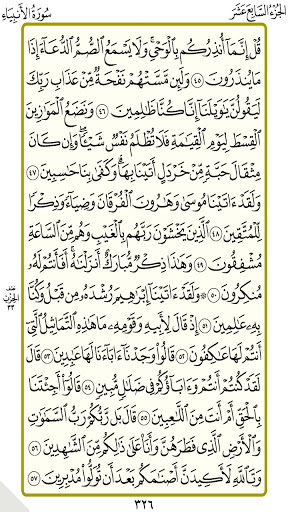 الجزء السابع عشر سورة الأنبياء
قُلۡ إِنَّمَآ أُنذِرُكُم بِٱلۡوَحۡيِۚ وَلَا يَسۡمَعُ ٱلصُّمُّ ٱلدُّعَآءَ إِذَا
مَا يُنذَرُونَ ٤٥ وَلَئِن مَّسَّتۡهُمۡ نَفۡحَةٞ مِّنۡ عَذَابِ رَبِّكَ
لَيَقُولُنَّ يَٰوَيۡلَنَآ إِنَّا كُنَّا ظَٰلِمِينَ ٤٦ وَنَضَعُ ٱلۡمَوَٰزِينَ
ٱلۡقِسۡطَ لِيَوۡمِ ٱلۡقِيَٰمَةِ فَلَا تُظۡلَمُ نَفۡسٞ شَيۡـٔٗاۖ وَإِن كَانَ
مِثۡقَالَ حَبَّةٖ مِّنۡ خَرۡدَلٍ أَتَيۡنَا بِهَاۗ وَكَفَىٰ بِنَا حَٰسِبِينَ
٤٧ وَلَقَدۡ ءَاتَيۡنَا مُوسَىٰ وَهَٰرُونَ ٱلۡفُرۡقَانَ وَضِيَآءٗ وَذِكۡرٗا
لِّلۡمُتَّقِينَ ٤٨ ٱلَّذِينَ يَخۡشَوۡنَ رَبَّهُم بِٱلۡغَيۡبِ وَهُم مِّنَ ٱلسَّاعَةِ
مُشۡفِقُونَ ٤٩ وَهَٰذَا ذِكۡرٞ مُّبَارَكٌ أَنزَلۡنَٰهُۚ أَفَأَنتُمۡ لَهُۥ
مُنكِرُونَ ٥٠ ۞ وَلَقَدۡ ءَاتَيۡنَآ إِبۡرَٰهِيمَ رُشۡدَهُۥ مِن قَبۡلُ وَكُنَّا
بِهِۦ عَٰلِمِينَ ٥١ إِذۡ قَالَ لِأَبِيهِ وَقَوۡمِهِۦ مَا هَٰذِهِ ٱلتَّمَاثِيلُ ٱلَّتِيٓ
أَنتُمۡ لَهَا عَٰكِفُونَ ٥٢ قَالُواْ وَجَدۡنَآ ءَابَآءَنَا لَهَا عَٰبِدِينَ ٥٣ قَالَ
لَقَدۡ كُنتُمۡ أَنتُمۡ وَءَابَآؤُكُمۡ فِي ضَلَٰلٖ مُّبِينٖ ٥٤ قَالُوٓاْ أَجِئۡتَنَا
بِٱلۡحَقِّ أَمۡ أَنتَ مِنَ ٱللَّٰعِبِينَ ٥٥ قَالَ بَل رَّبُّكُمۡ رَبُّ ٱلسَّمَٰوَٰتِ
وَٱلۡأَرۡضِ ٱلَّذِي فَطَرَهُنَّ وَأَنَا۠ عَلَىٰ ذَٰلِكُم مِّنَ ٱلشَّٰهِدِينَ ٥٦
وَتَٱللَّهِ لَأَكِيدَنَّ أَصۡنَٰمَكُم بَعۡدَ أَن تُوَلُّواْ مُدۡبِرِينَ ٥٧
٣٢٦